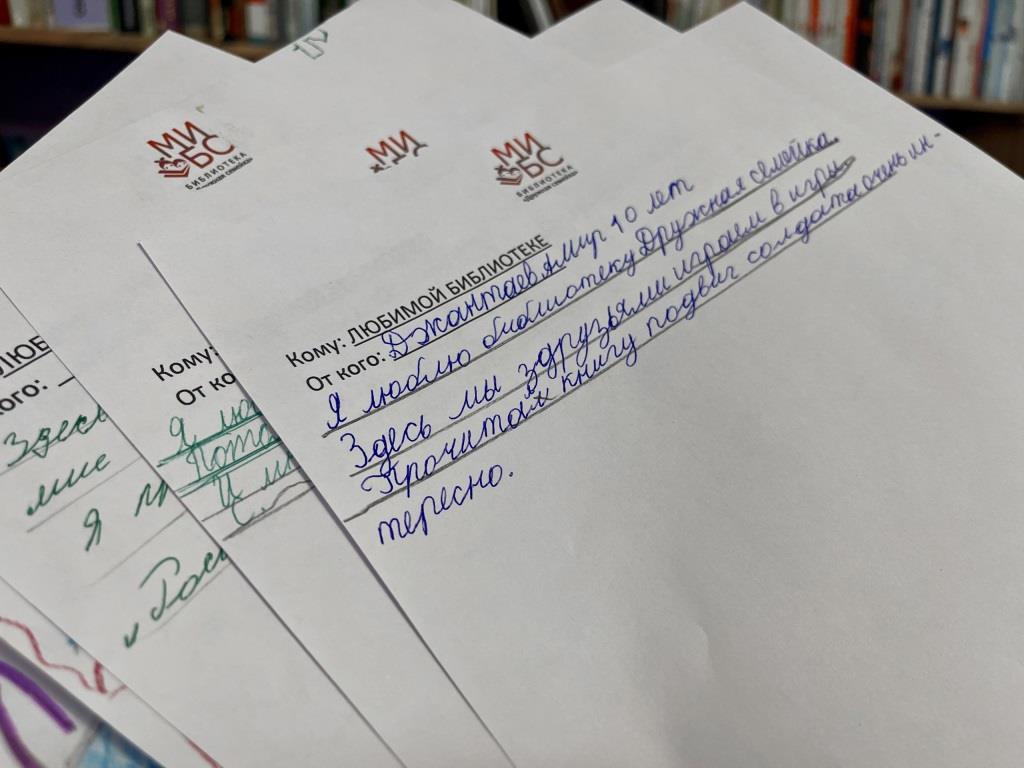 МИ
БС
БИБЛИОТЕКА
МИ
МИ
БС
БИБЛИОТЕКА
«Дружная семейка»
Кому: ЛЮБИМОЙ БИБЛИОТЕКЕ
От кого: Джантаев Амир 10 лет
Я люблю библиотеку Дружная семейка.
Здесь мы здрузьями играем в игры
Прочитал книгу подвиг солдата очень ин-
тересно.
Кому:
От ко
Я лю
Пото
И м
ЛЮБ
ого:
Здесь
мне
Я пр